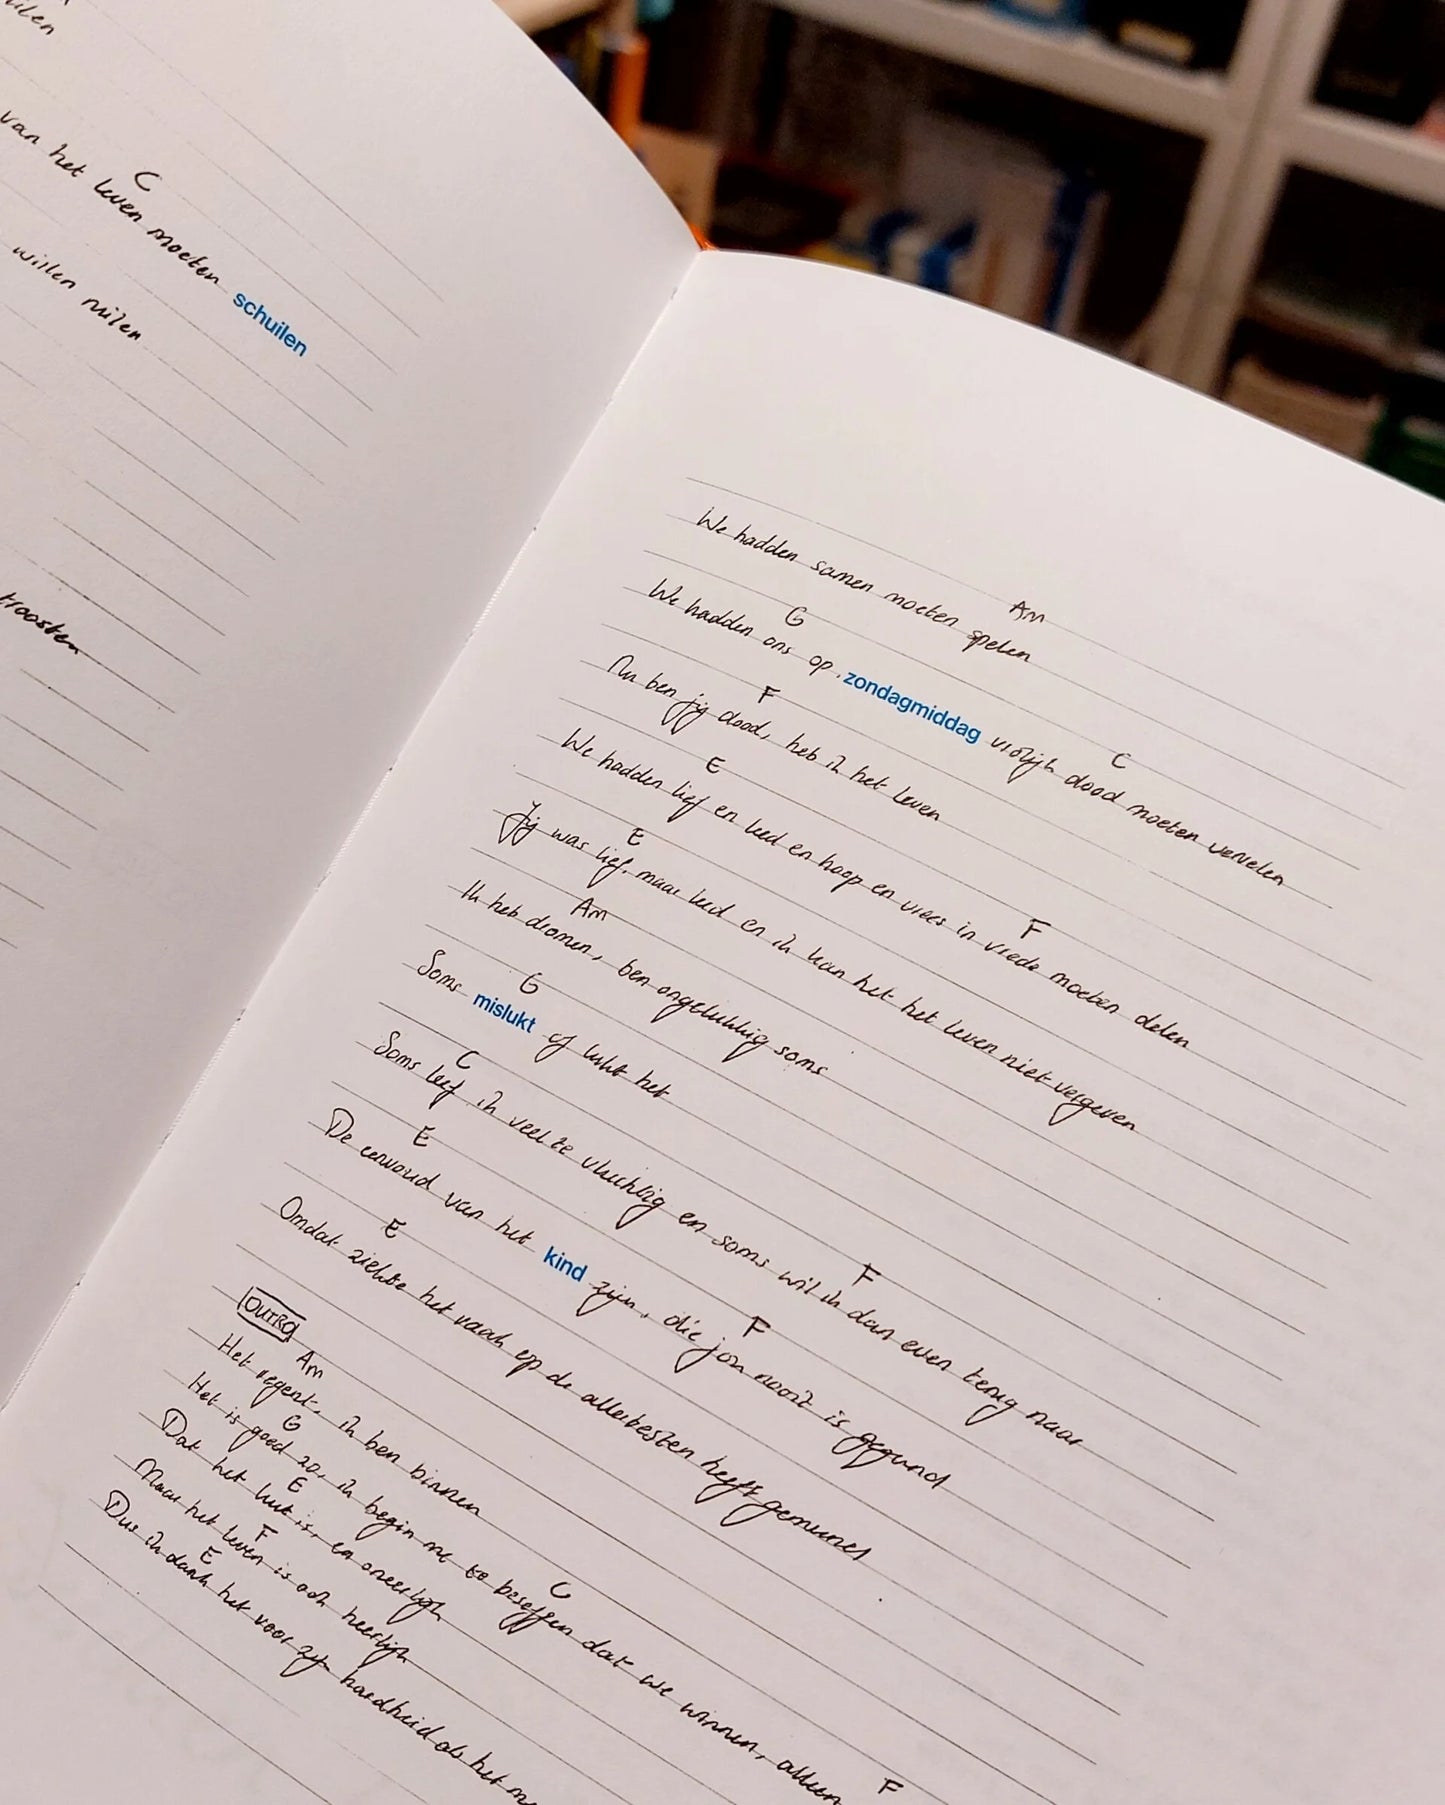 uilen
C
van het leven moeten schuilen
willen ruilen
troosten
Am
We hadden samen moeten spelen
G C
We hadden ons op zondagmiddag vrolijk dood moeten vervelen
F
Nu ben jij dood, heb ik het leven
E F
We hadden lief en leed en hoop en vrees in vrede moeten delen
E
Jij was lief, maar leed en ik kan het het leven niet vergeven
Am
Ik heb dromen, ben ongelukkig soms
G
Soms mislukt of lukt het
C F
Soms leef ik veel te vluchtig en soms wil ik dan even terug naar
E F
De eenvoud van het kind zijn, die jou nooit is gegund
E
Omdat ziekte het vaak op de allerbesten heeft gemunt
OUTRO
Am
Het regent, ik ben binnen
G C
Het is goed zo, ik begin me te beseffen dat we winnen, alleen
E F
Dat het leuk is, en oneerlijk
F
Maar het leven is ook heerlijk
E
Dus ik dank het voor zijn hardheid als het